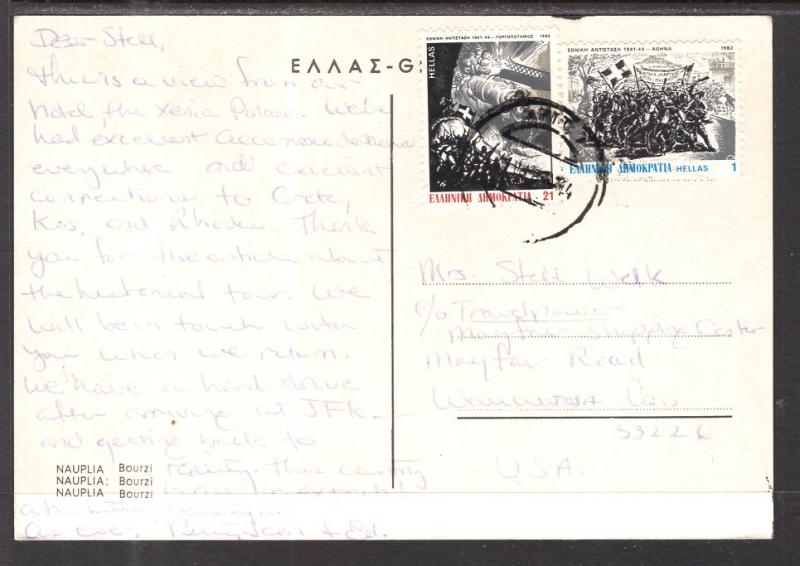 Dear Stell,
This is a view from our
hotel the Xenia Palace. We've
had excellent accommodations
everywhere and excellent
connections to Crete,
Kos, and Rhodes. Thank
you for the article about
the historical tour. We
will be in touch with
you when we return.
We have a hard drive
after arriving at JFK
and getting back to
reality. This country
as ever, &  Ed.
NAUPLIA Bourzi
NAUPLIA: Bourzi
NAUPLIA Bourzi
ΕΛΛΑΣ-G
ΕΘΝΙΚΗ ΑΝΤΙΣΤΑΣΗ 1941-44 - ΓΟΡΓΟΠΟΤΑΜΟΣ 1982
HELLAS
ΕΛΛΗΝΙΚΗ ΔΗΜΟΚΡΑΤΙΑ 21
ΕΘΝΙΚΗ ΑΝΤΙΣΤΑΣΗ 1941-44 - ΑΘΗΝΑ 1982
ΕΛΛΗΝΙΚΗ ΔΗΜΟΚΡΑΤΙΑ HELLAS 1
Mrs. Stell Welk
c/o Travelpower
Mayfair Shopping Center
Mayfair Road
Wauwatosa Wis
53226
U.S.A.